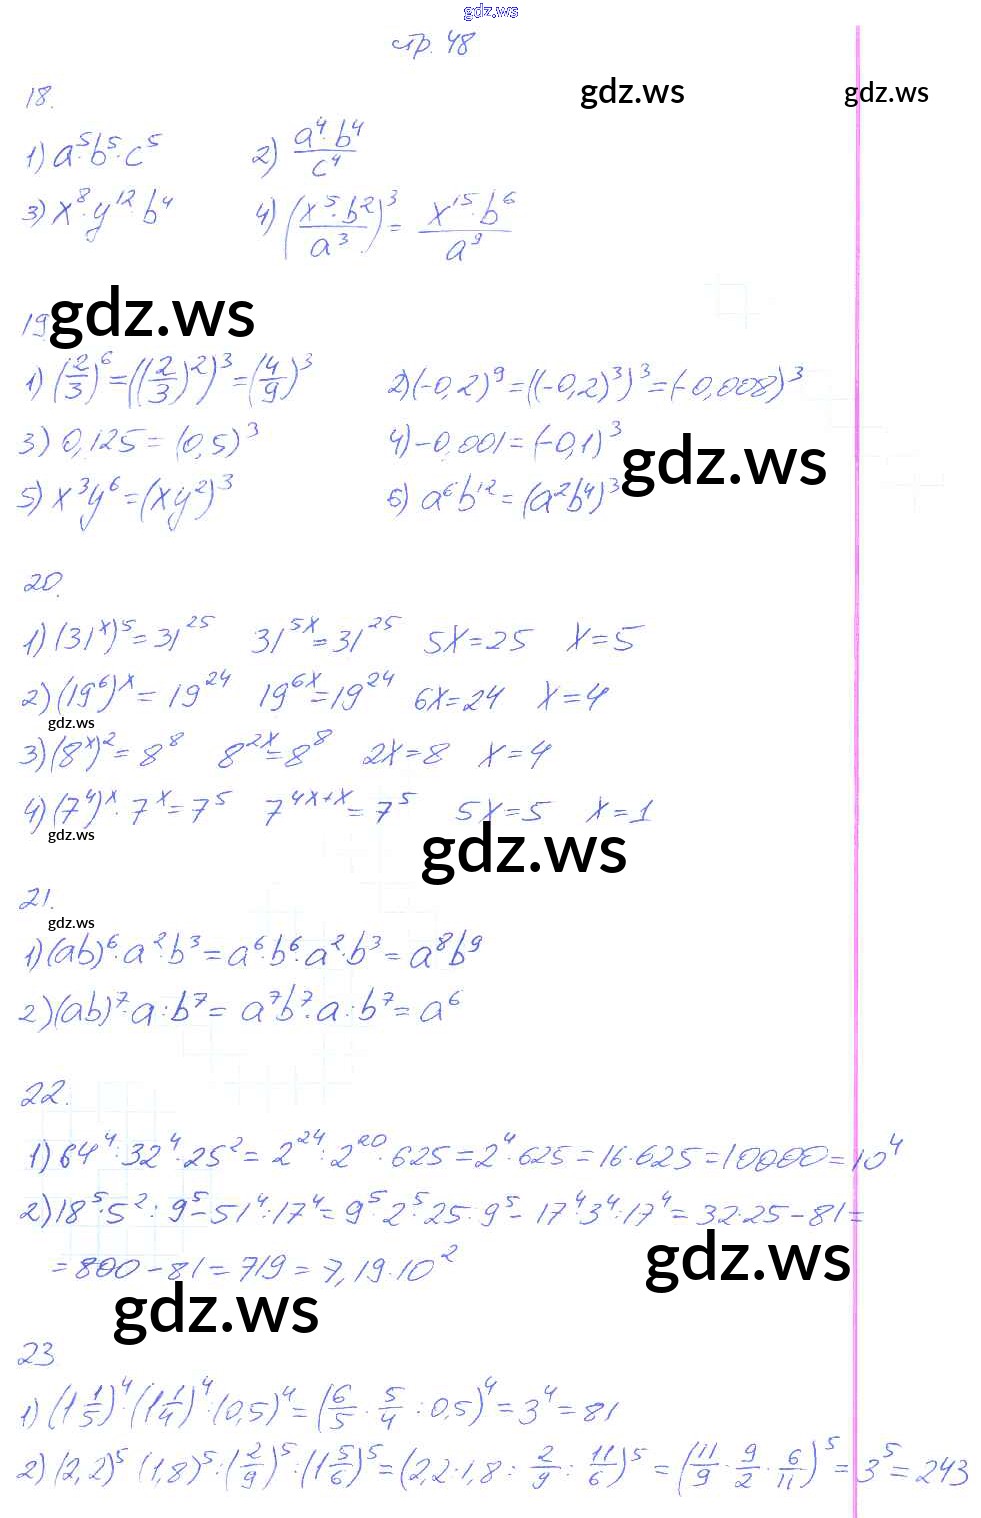 gdz.ws
стр. 48
18.
gdz.ws gdz.ws
1) a⁵·b⁵·c⁵ 2) (a⁴·b⁴)/c⁴
3) x⁸·y¹²·b⁴ 4) ((x⁵·b²)/a³)³ = (x¹⁵·b⁶)/a⁹
19 gdz.ws
1) (2/3)⁶ = ((2/3)²)³ = (4/9)³ 2) (-0,2)⁹ = ((-0,2)³)³ = (-0,008)³
3) 0,125 = (0,5)³ 4) -0,001 = (-0,1)³
gdz.ws
5) x³y⁶ = (xy²)³ 6) a⁶b¹² = (a²b⁴)³
20.
1) (31ˣ)⁵ = 31²⁵ 31⁵ˣ = 31²⁵ 5x = 25 x = 5
2) (19⁶)ˣ = 19²⁴ 19⁶ˣ = 19²⁴ 6x = 24 x = 4
gdz.ws
3) (8ˣ)² = 8⁸ 8²ˣ = 8⁸ 2x = 8 x = 4
4) (7⁴)ˣ · 7ˣ = 7⁵ 7⁴ˣ⁺ˣ = 7⁵ 5x = 5 x = 1
gdz.ws gdz.ws
21.
gdz.ws
1) (ab)⁶·a²·b³ = a⁶·b⁶·a²·b³ = a⁸b⁹
2) (ab)⁷·a:b⁷ = a⁷b⁷·a:b⁷ = a⁶
22.
1) 64⁴:32⁴·25² = 2²⁴:2²⁰·625 = 2⁴·625 = 16·625 = 10000 = 10⁴
2) 18⁵·5²:9⁵ - 51⁴:17⁴ = 9⁵·2⁵·25·9⁵ - 17⁴·3⁴:17⁴ = 32·25 - 81 =
= 800 - 81 = 719 = 7,19·10² gdz.ws
gdz.ws
23
1) (1 1/5)⁴·(1 1/4)⁴:(0,5)⁴ = (6/5 · 5/4 : 0,5)⁴ = 3⁴ = 81
2) (2,2)⁵ (1,8)⁵:(2/9)⁵:(1 5/6)⁵ = (2,2·1,8 : 2/9 : 11/6)⁵ = (11/9 · 9/2 · 6/11)⁵ = 3⁵ = 243